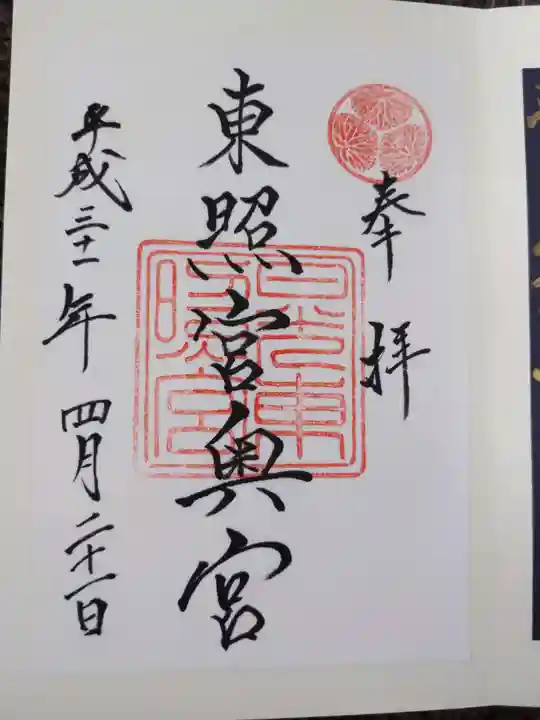 奉拝
東照宮奥宮
日光東照宮
平成三十一年四月二十一日